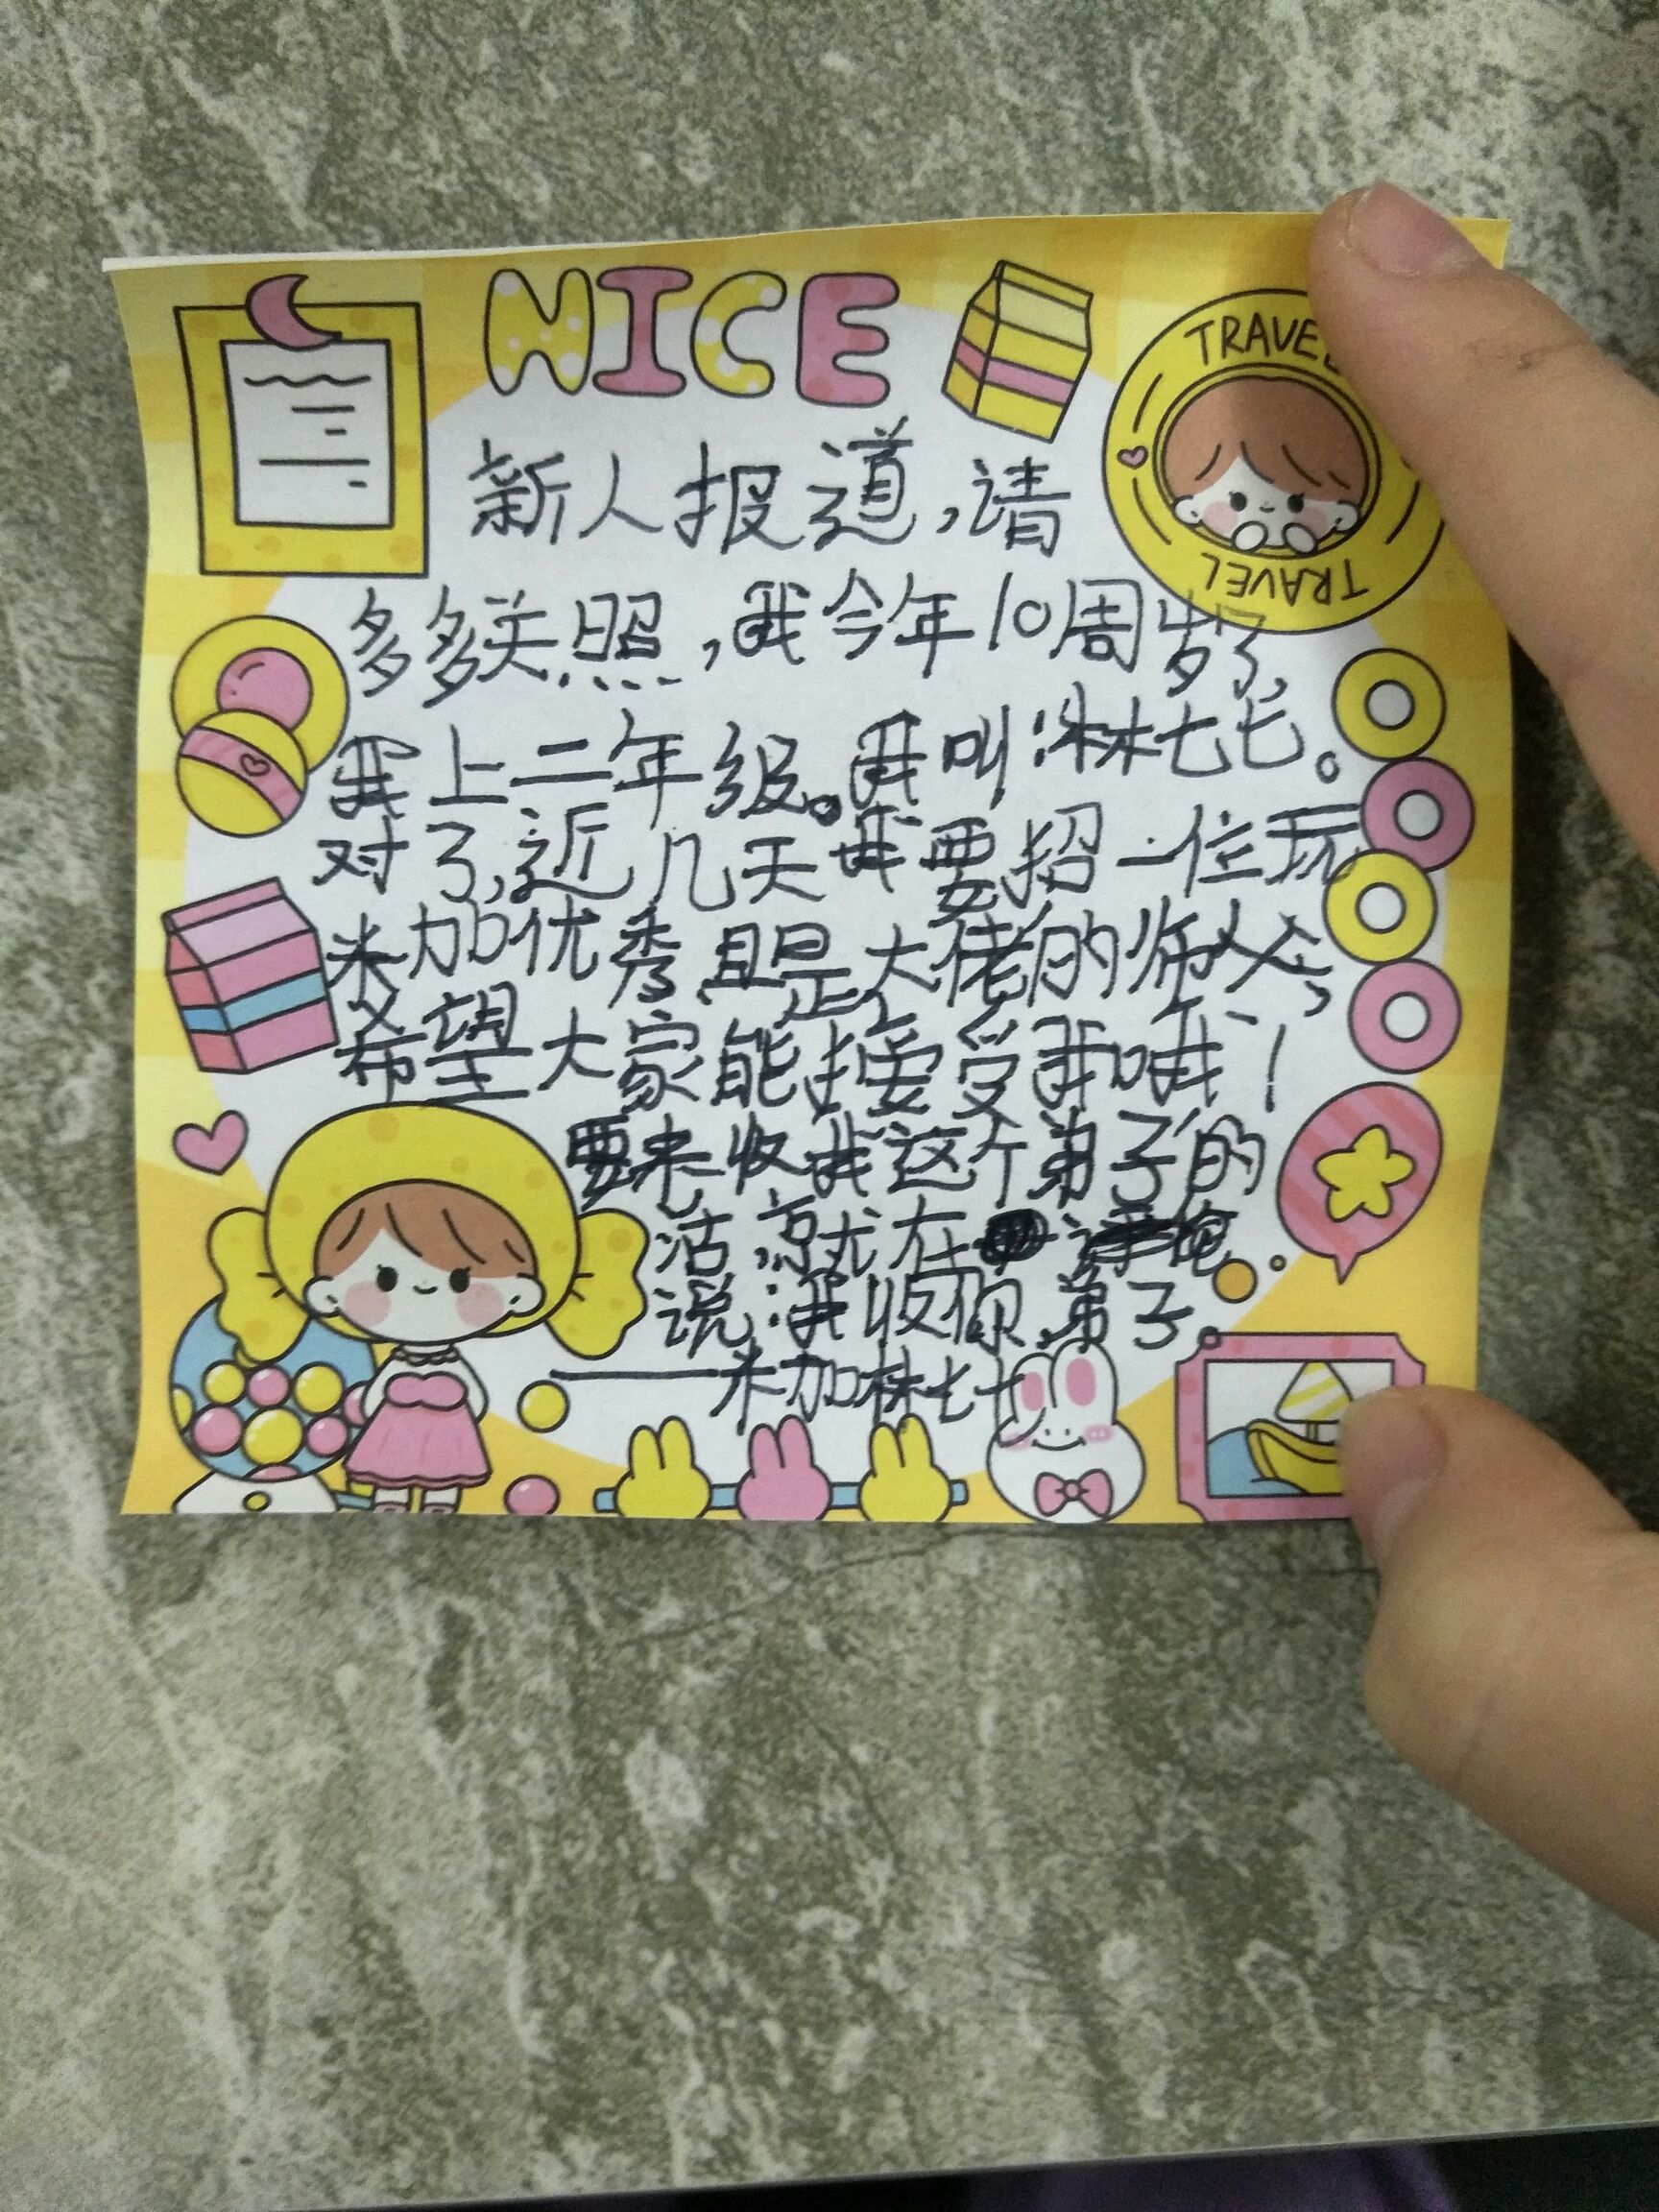 NICE
TRAVEL
TRAVEL
新人报道,请
多多关照,我今年10周岁了,
我上二年级。我叫:林七七。
对了,近几天我要招一位玩
米加优秀且是大佬的师父,
希望大家能接受我哦!
要来收我这个弟子的
话,就在
说:我收你弟子
——米加林七七